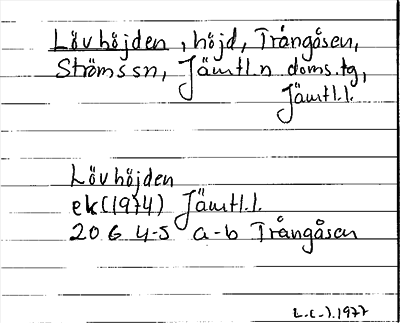 Lövhöjden, höjd, Trångåsen,
Ströms sn, Jämtl.n doms.tg,
Jämtl.l.
Lövhöjden
ek (1974) Jämtl.l.
20 G 4-5 a-b Trångåsen
1977